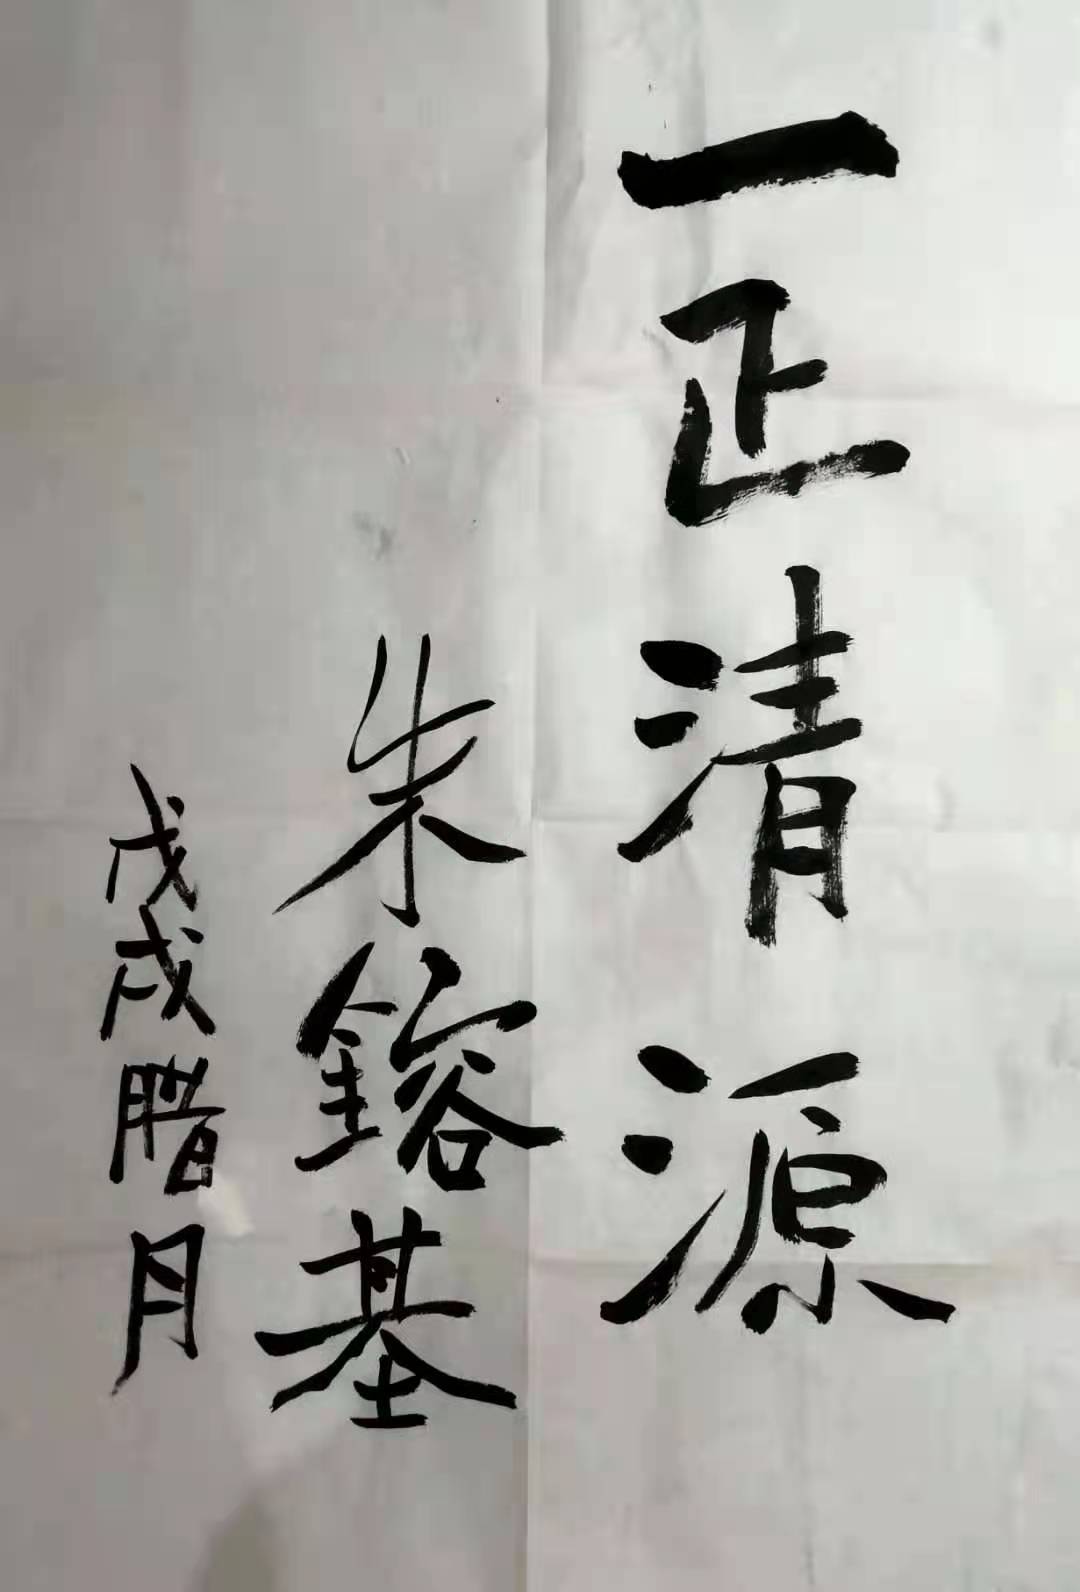 一正清源
朱鎔基
戊戌腊月